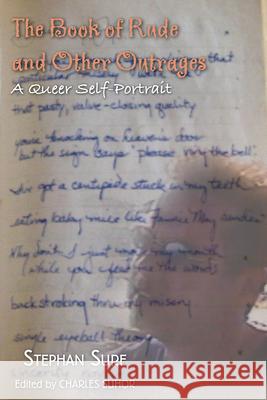 The Book of Rude
and Other Outrages
A Queer Self-Portrait
that pasty, valve-closing quality
you're knocking on heaven's door
but the sign says "please ring the bell."
I've got a centipede stuck in my teeth
eating baby mice like
Why don't I just my mouth
while you feed me the words
backstroking through my misery
single eyeball theory
STEPHAN SURE
Edited by CHARLES SUHOR